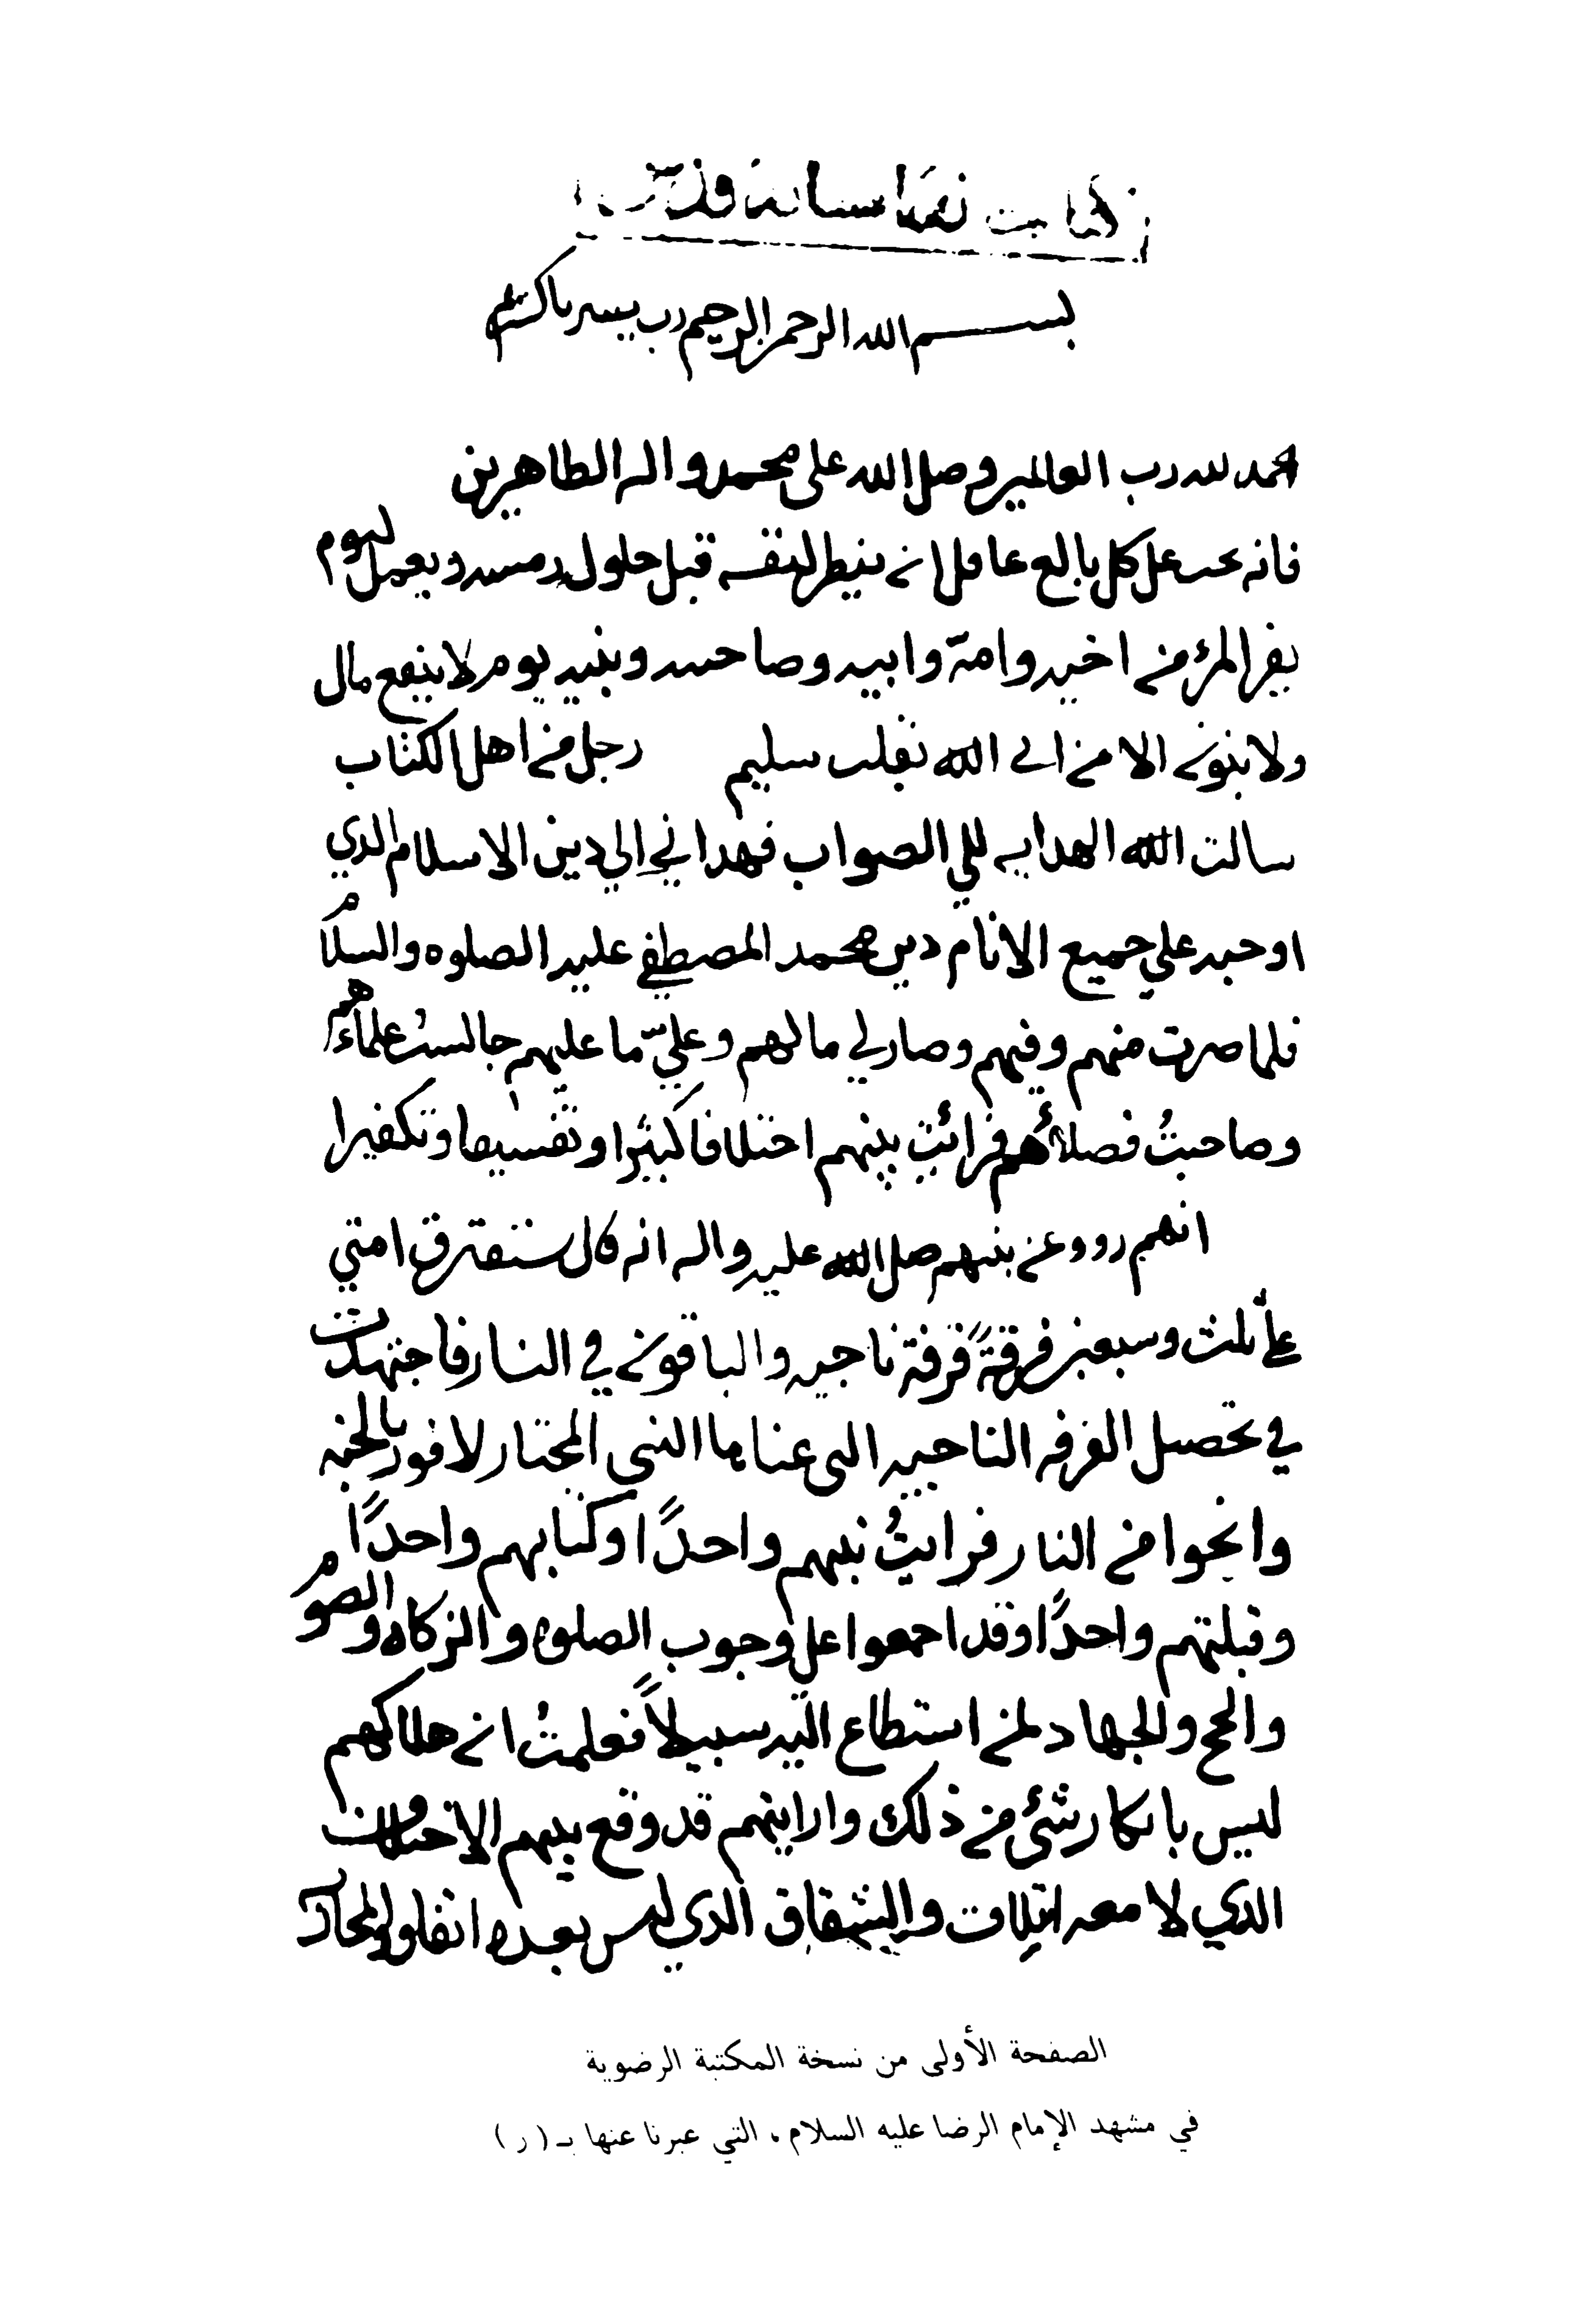 بسم الله الرحمن الرحيم رب يسر يا كريم
الحمد لله رب العالمين وصلى الله على محمد واله الطاهرين
فانه يجب على كل بالغ عاقل ان ينظر لنفسه قبل حلول رمسه ويعمل ليوم
يفر المرء من اخيه وامه وابيه وصاحبته وبنيه يوم لا ينفع مال
ولا بنون الا من اتى الله بقلب سليم رجل من اهل الكتاب
سالت الله الهدايه الى الصواب فهداني إلي دين الاسلام الدي
اوجبه علي جميع الانام دين محمد المصطفي عليه الصلوه والسلام
فلما صرت منهم وفيهم وصار لي ما لهم وعليّ ما عليهم جالستُ علماءهم
وصاحبتُ فضلائهم فرائت بينهم اختلافا كثيرا وتفسيقا وتكفيرا
انهم رووعن نبيهم صلى الله عليه واله انه قال ستفترق امتي
على ثلث وسبعين فرقةً فرقة ناجيه والباقون في النار فاجتهدت
في تحصيل الفرقه الناجيه التى عناها النبى المختار لافوز بالجنه
وانجوا من النار فرايتُ نبيهم واحدًا وكتابهم واحدًا
وقبلتهم واحدًا وقد اجمعوا على وجوب الصلوه والزكاه والصوم
والحج والجهاد لمن استطاع اليه سبيلاً فعلمتُ ان هلاكهم
ليس بانكار شئ من ذلك وارايتهم قد وقع بينهم الاختلاف
الدي لا معه ايتلاف والشقاق الدي ليس بعده اتفاق
الصفحة الأولى من نسخة المكتبة الرضوية
في مشهد الإمام الرضا عليه السلام ، التي عبرنا عنها بـ ( ر )